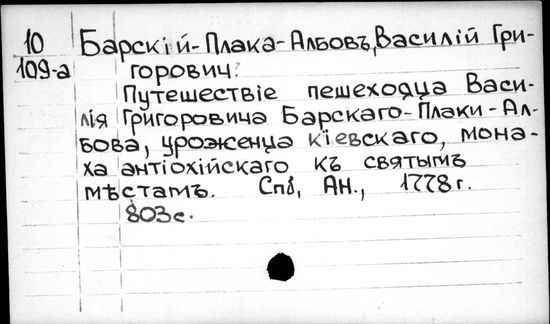 10 Барскій-Плака-Албовъ, Василій Гри-
109-а горович.
Путешествіе пешеходца Васи-
лія Григоровича Барскаго-Плаки-Ал-
бова, уроженца кіевскаго, мона-
ха антіохійскаго къ святымъ
мѣстамъ. Спб, АН., 1778 г.
803 с.